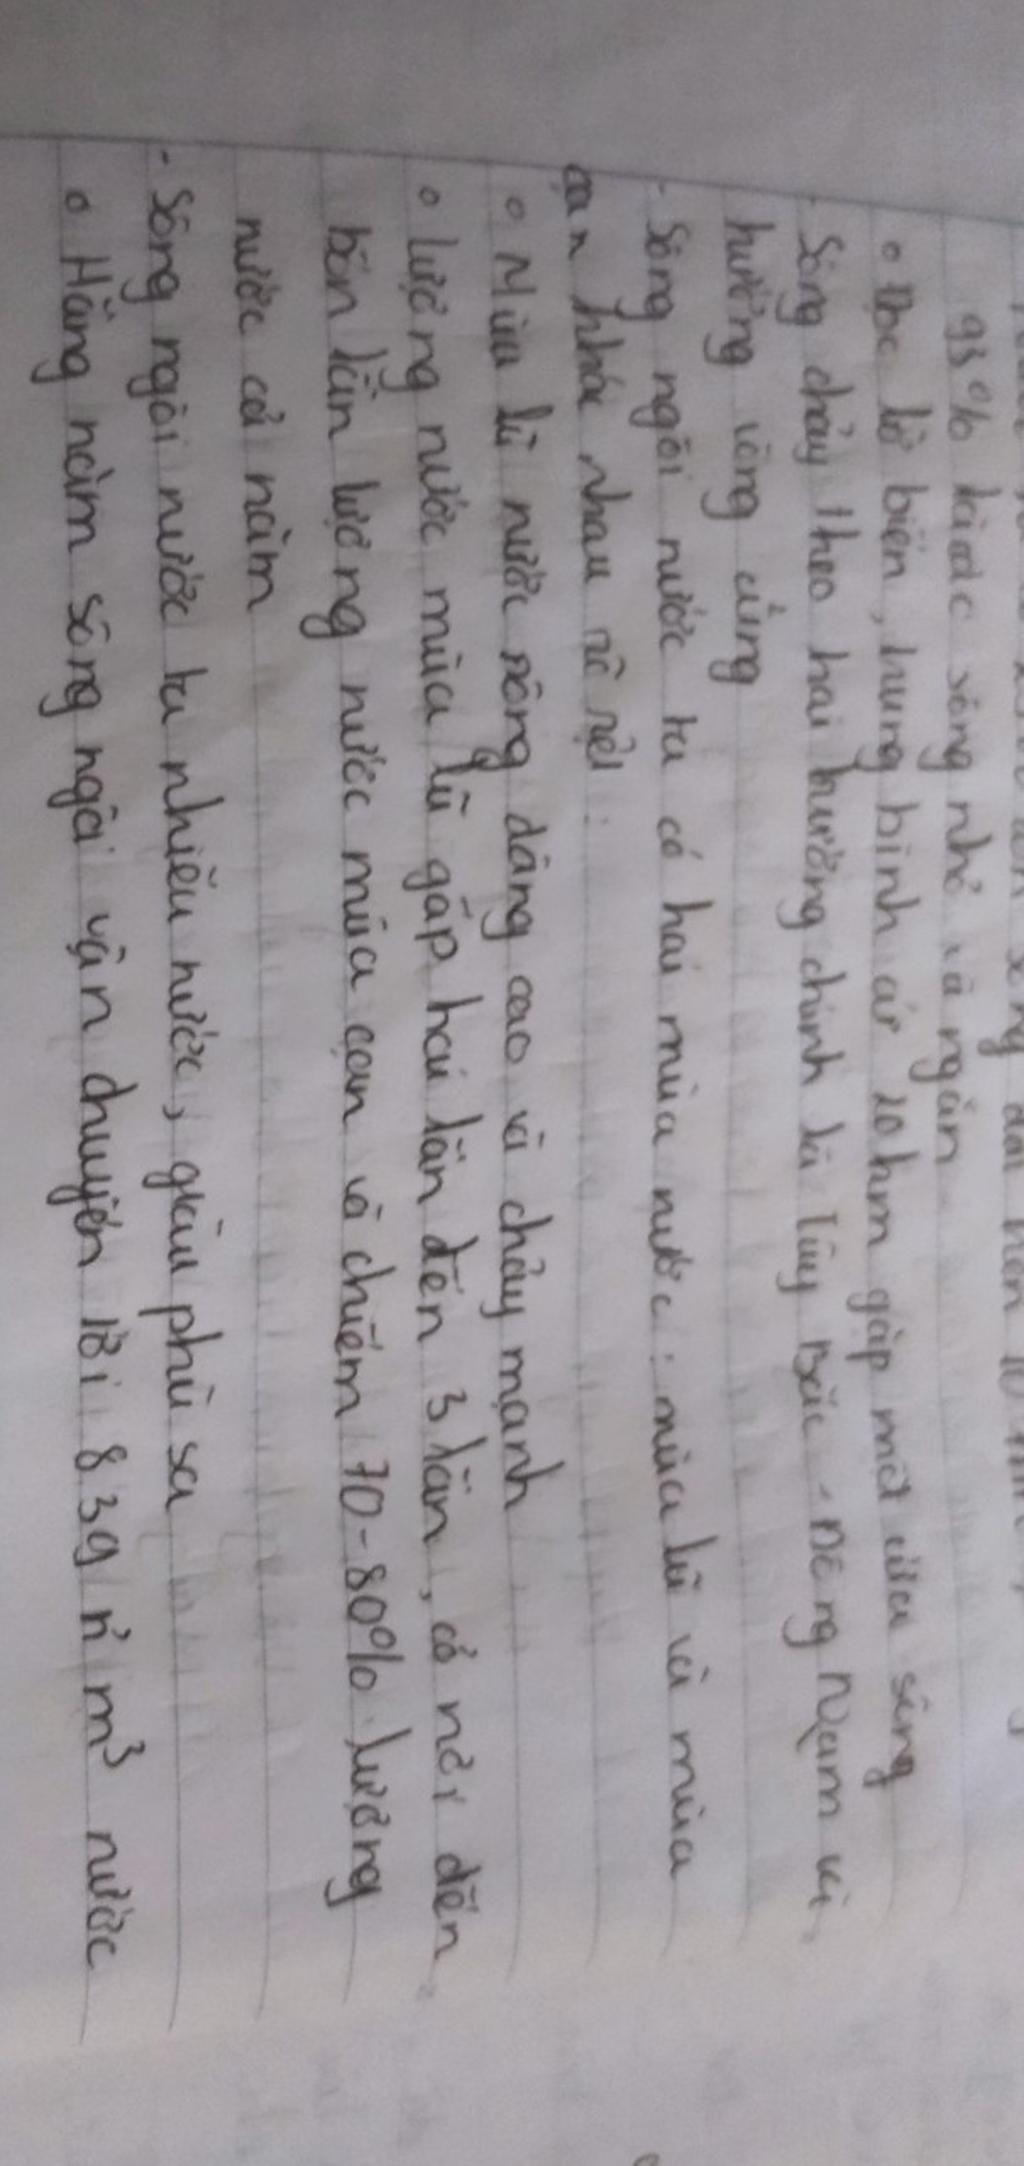 93% là các sông nhỏ và ngắn
o Dọc bờ biển, trung bình cứ 20km gặp một cửa sông
- Sông chảy theo hai hướng chính là Tây Bắc - Đông Nam và
hướng vòng cung
- Sông ngòi nước ta có hai mùa nước: mùa lũ và mùa
cạn khác nhau rõ rệt:
o Mùa lũ nước sông dâng cao và chảy mạnh
o Lượng nước mùa lũ gấp hai lần đến 3 lần, có nơi đến
bốn lần lượng nước mùa cạn và chiếm 70-80% lượng
nước cả năm
- Sông ngòi nước ta nhiều nước, giàu phù sa
o Hằng năm sông ngòi vận chuyển tới 839 tỉ m³ nước